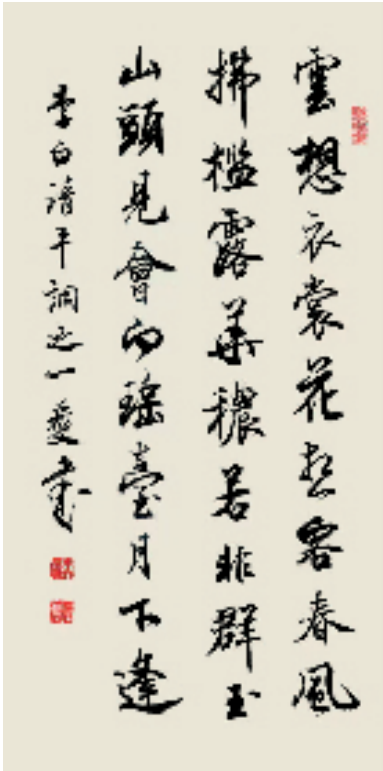 雲想衣裳花想容春風
拂檻露華穠若非群玉
山頭見會向瑤臺月下逢
李白清平調之一